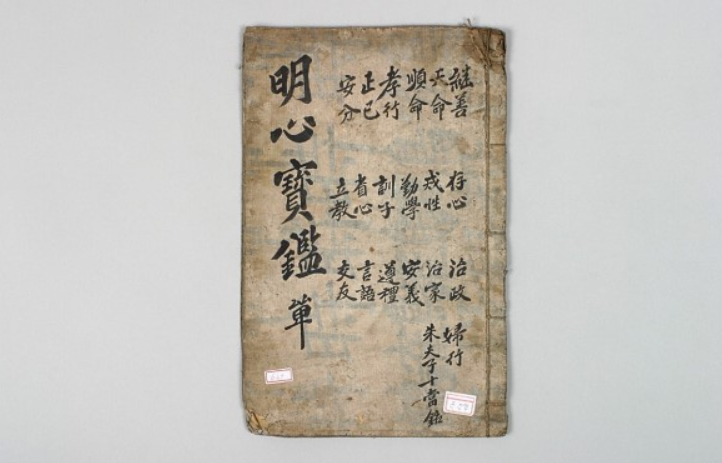 継善 存心 治政 婦行
天命 戒性 治家 朱夫子十當
順命 勤學 安義
孝行 訓子 遵禮
正己 省心 言語
安分 立教 交友
明心寶鑑 單